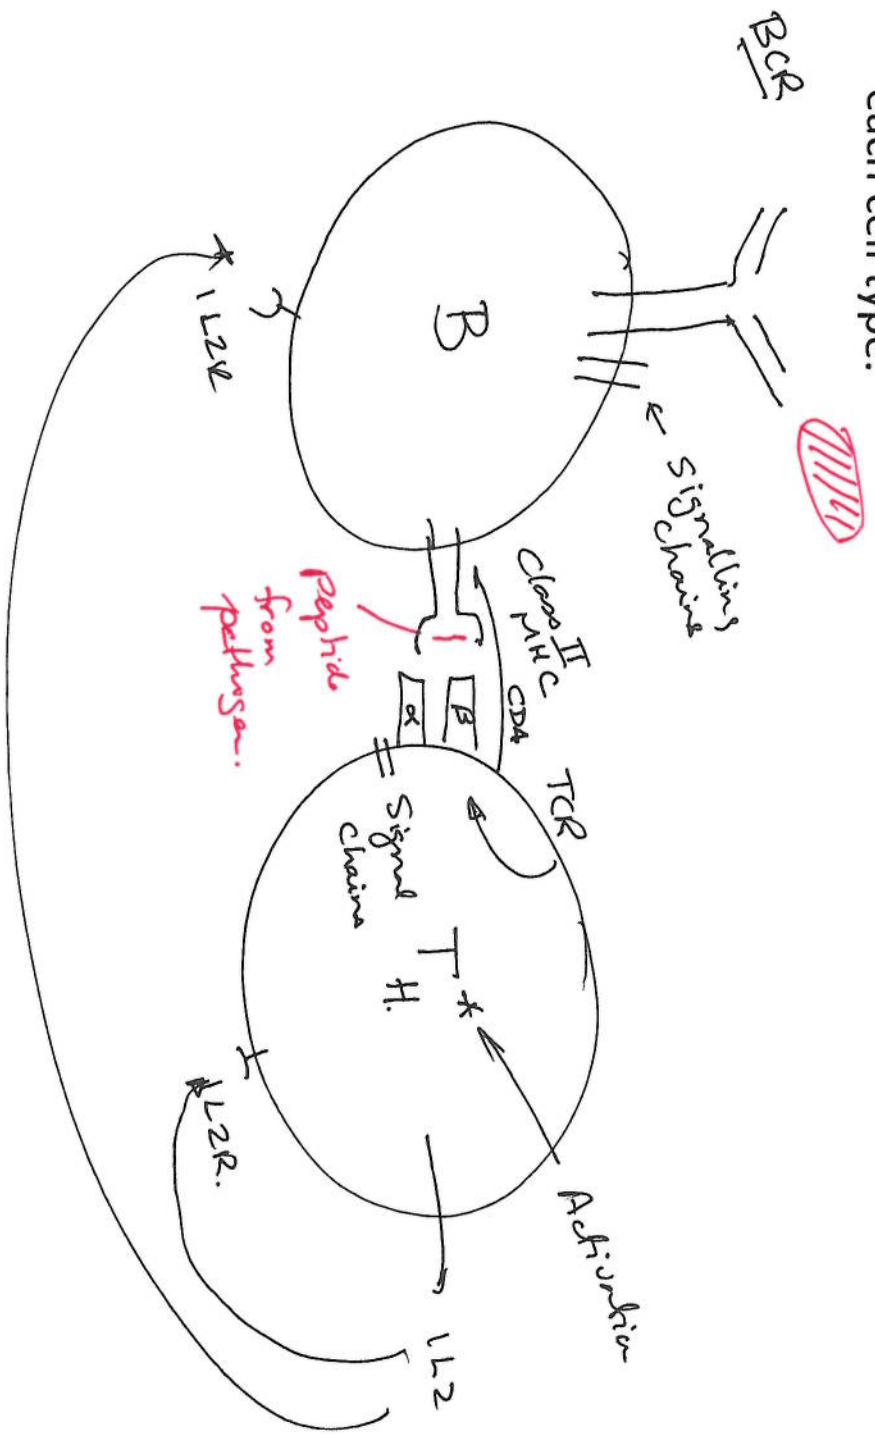 each cell type.
BCR
signalling
chains
B
IL2R
Class II
MHC
CD4
TCR
β
α
Peptide
from
pathogen.
Signal
chains
T *
H.
Activation
IL2R.
IL2